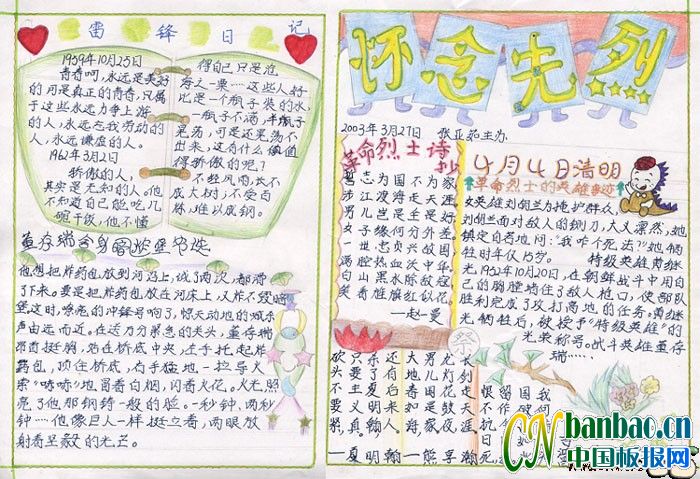 雷锋日记
1959年10月25日
青春呵,永远是美好
的,可是真正的青春,只属
于这些永远力争上游
的人,永远忘我劳动的
人,永远谦虚的人。
1962年3月2日
骄傲的人,
其实是无知的人。他
不知道自己能吃几
碗干饭,他不懂
得自己只是沧
海之一粟……这些人好
比是一个瓶子装的水,
一瓶子不满,半瓶子
晃荡,可是还晃荡不
出来,这有什么值得
骄傲的呢?
不经风雨,长不
成大树;不受百
炼,难以成钢。
董存瑞舍身
他想把炸药包放到河沿上,试了两次,都滑
了下来。要是把炸药包放在河床上,又炸不毁暗
堡。这时,嘹亮的冲锋号响了,惊天动地的喊杀
声由远而近。在这万分紧急的关头,董存瑞
昂首挺胸,站在桥底中央,左手托起炸
药包,顶住桥底,右手猛地一拉导火
索。“哧哧”地冒着白烟,闪着火花。火光照
亮了他那钢铸一般的脸。一秒钟,两秒
钟……他像巨人一样挺立着,两眼放
射着坚毅的光芒。
怀念先烈
2003年3月27日 张亚茹主办
革命烈士诗抄
誓志为国不为家
涉江渡海走天涯
男儿岂是全是好
女子缘何分外差
一世忠贞兴故国
满腔热血沃中华
白山黑水除敌寇
笑看旌旗红似花
—赵一曼
4月4日清明
革命烈士的英雄事迹
女英雄刘胡兰为掩护群众,
刘胡兰面对敌人的铡刀,大义凛然,她
镇定自若地问:“我咋个死法?”她牺
牲时年仅15岁。
特级英雄黄继
光,1952年10月20日,在朝鲜战斗中用自
己的胸膛堵住了敌人枪口,使部队
胜利完成了攻打高地的任务,黄继
光牺牲后,被授予“特级英雄”的
光荣称号。战斗英雄董存
瑞……
砍头不要紧,
只要主义真,
杀了夏明翰,
还有后来人。
—夏明翰
CN banbao.cn
中国板报网